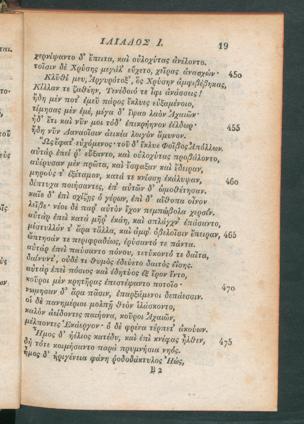 ΙΛΙΑΔΟΣ Ι. 19
χερνίψαντο δ' ἔπειτα, καὶ οὐλοχύτας ἀνέλοντο.
τοῖσιν δὲ Χρύσης μεγάλ' εὔχετο, χεῖρας ἀνασχών· 450
Κλῦθί μευ, Ἀργυρότοξ', ὃς Χρύσην ἀμφιβέβηκας,
Κίλλαν τε ζαθέην, Τενέδοιό τε ἶφι ἀνάσσεις!
ἤδη μέν ποτ' ἐμεῦ πάρος ἔκλυες εὐξαμένοιο,
τίμησας μὲν ἐμέ, μέγα δ' ἴψαο λαὸν Ἀχαιῶν·
ἠδ' ἔτι καὶ νῦν μοι τόδ' ἐπικρήηνον ἐέλδωρ· 455
ἤδη νῦν Δαναοῖσιν ἀεικέα λοιγὸν ἄμυνον.
Ὣς ἔφατ' εὐχόμενος· τοῦ δ' ἔκλυε Φοῖβος Ἀπόλλων.
αὐτὰρ ἐπεί ῥ' εὔξαντο, καὶ οὐλοχύτας προβάλοντο,
αὐέρυσαν μὲν πρῶτα, καὶ ἔσφαξαν καὶ ἔδειραν,
μηρούς τ' ἐξέταμον, κατά τε κνίσσῃ ἐκάλυψαν, 460
δίπτυχα ποιήσαντες, ἐπ' αὐτῶν δ' ὠμοθέτησαν.
καῖε δ' ἐπὶ σχίζῃς ὁ γέρων, ἐπὶ δ' αἴθοπα οἶνον
λεῖβε· νέοι δὲ παρ' αὐτὸν ἔχον πεμπώβολα χερσίν.
αὐτὰρ ἐπεὶ κατὰ μῆρ' ἐκάη, καὶ σπλάγχν' ἐπάσαντο,
μίστυλλόν τ' ἄρα τἆλλα, καὶ ἀμφ' ὀβελοῖσιν ἔπειραν, 465
ὤπτησάν τε περιφραδέως, ἐρύσαντό τε πάντα.
αὐτὰρ ἐπεὶ παύσαντο πόνου, τετύκοντό τε δαῖτα,
δαίνυντ', οὐδέ τι θυμὸς ἐδεύετο δαιτὸς ἐΐσης.
αὐτὰρ ἐπεὶ πόσιος καὶ ἐδητύος ἐξ ἔρον ἕντο,
κοῦροι μὲν κρητῆρας ἐπεστέψαντο ποτοῖο· 470
νώμησαν δ' ἄρα πᾶσιν, ἐπαρξάμενοι δεπάεσσιν.
οἱ δὲ πανημέριοι μολπῇ θεὸν ἱλάσκοντο,
καλὸν ἀείδοντες παιήονα, κοῦροι Ἀχαιῶν,
μέλποντες Ἑκάεργον· ὁ δὲ φρένα τέρπετ' ἀκούων.
Ἦμος δ' ἠέλιος κατέδυ, καὶ ἐπὶ κνέφας ἦλθεν, 475
δὴ τότε κοιμήσαντο παρὰ πρυμνήσια νηός.
ἦμος δ' ἠριγένεια φάνη ῥοδοδάκτυλος Ἠώς,
B 2